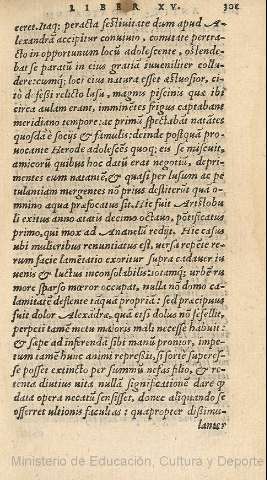 LIBER XV. 301
ceret. Itaq; peracta festiuitate dum apud A-
lexandrã accipitur conuiuio, comitate peretra-
cto in opportunum locũ adolescente, ostende-
bat se paratũ in eius gratiã iuueniliter collu-
dere: cumq; loci eius natura esset æstuosior, ci-
tò defessi relicto lusu, magnis piscinis quæ ibi
circa aulam erant, imminẽtes frigus captabant
meridiano tempore: ac primũ spectabãt natãtes
quosdã è socijs & famulis: deinde postquã pro-
uocante Herode adolescẽs quoq; eis se miscuit,
amicorũ quibus hoc datũ erat negotiũ, depri-
mentes eum natantẽ, & quasi per lusum ac pe
tulantiam mergentes nõ prius destiterũt quã o-
mnino aqua præfocatus sit. Hic fuit Aristobu-
li exitus anno ætatis decimo octauo, põtificatus
primo, qui mox ad Ananelũ redijt. Hic casus
ubi mulieribus renuntiatus est, uersa repẽte re-
rum facie lamẽtatio exoritur supra cadauer iu
uenis & luctus inconsolabilis: totamq; urbẽ ru
more sparso mœror occupat, nulla nõ domo ca-
lamitatẽ deflente tãquã propriã: sed præcipuus
fuit dolor Alexãdræ, quã etsi dolus nõ fefellit,
perpeti tamẽ metu maioris mali necesse habuit:
& sæpe ad inferendã sibi manũ pronior, impe-
tum tamẽ hunc animi repressit, si fortè supereß-
se posset extincto per summũ nefas filio, & re-
tenta diutius uita nullã significationẽ dare q̃
data opera necatũ sensisset, donec aliquando se
offerret ultionis facultas: quapropter dissimu-
lanter
Ministerio de Educación, Cultura y Deporte